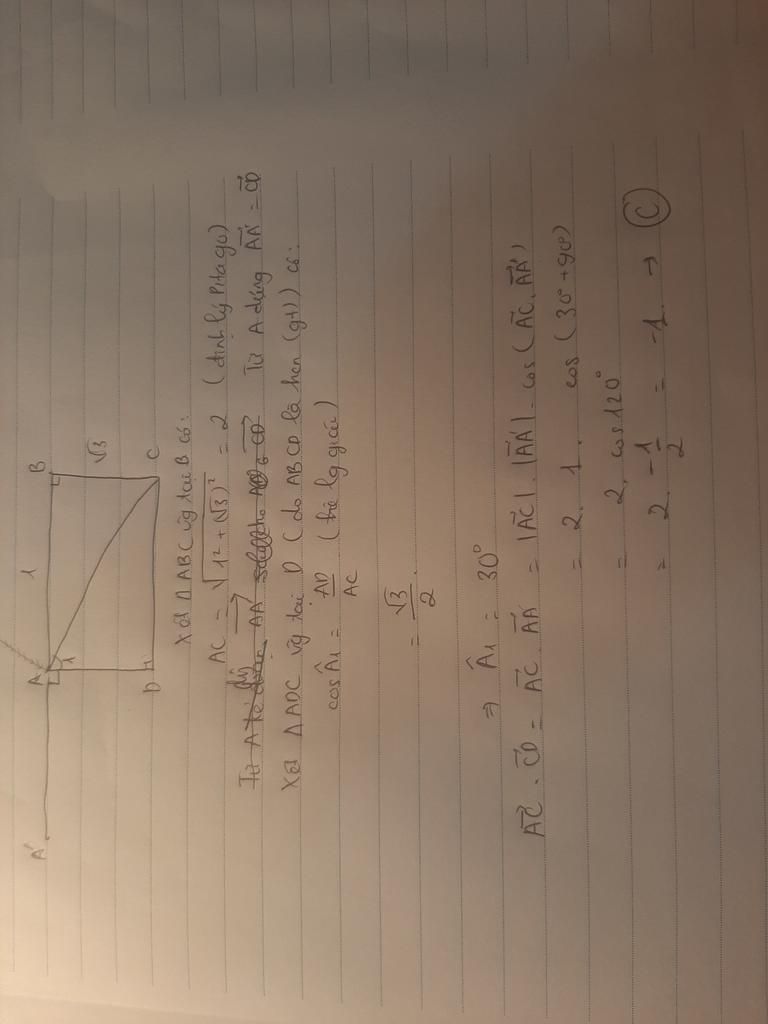 A'
A
B
1
1
√3
D
C
Xét ΔABC vg tại B có:
AC = √1² + (√3)² = 2 (định lý Pitago)
Từ A dựng AA' = CD
Xét ΔADC vg tại D (do ABCD là hcn (gt)) có:
cos Â1 = AD/AC (tỉ lg giác)
= √3/2.
⇒ Â1 = 30°
AC . CD = AC . AA' = |AC| . |AA'| . cos (AC, AA')
= 2 . 1 . cos (30° + 90°)
= 2. cos120°
= 2. -1/2 = -1. → C